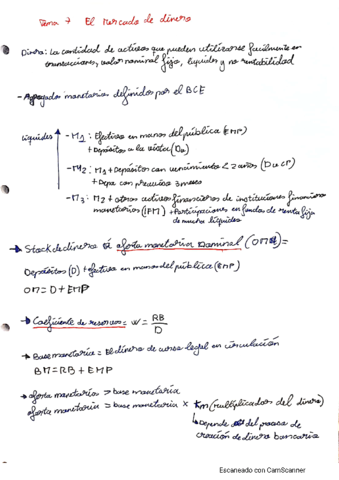 Tema 7 El Mercado de dinero
Dinero: La cantidad de activos que pueden utilizarse facilmente en
transacciones, valor nominal fijo, liquidos y no rentabilidad
- Agregados monetarios definidos por el BCE
Liquides
- M1: Efectivo en manos del pública (EMP)
+ Depósitos a la vista (Dv)
- M2: M1 + Depósitos con vencimiento < 2 años (D a CP)
+ Depo con preaviso 3 meses
- M3: M2 + otros activos financieros de instituciones financieras
monetarias (IFM) + Participaciones en fondos de renta fija
de mucha liquides
→ Stock de dinero ó oferta monetaria Nominal (OM) =
Depósitos (D) + efectivo en manos del público (EMP)
OM = D + EMP
→ Coeficiente de reservas = W = RB
D
→ Base monetaria = El dinero de curso legal en circulación
BM = RB + EMP
→ oferta monetaria > base monetaria
oferta monetaria = base monetaria × Km (multiplicador del dinero)
↳ Depende del proceso de
creación de dinero bancaria
Escaneado con CamScanner